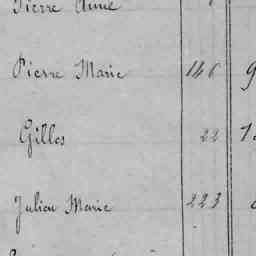 Pierre Anne
Pierre Marie 146 9
Gilles 22 1
Julien Marie 223